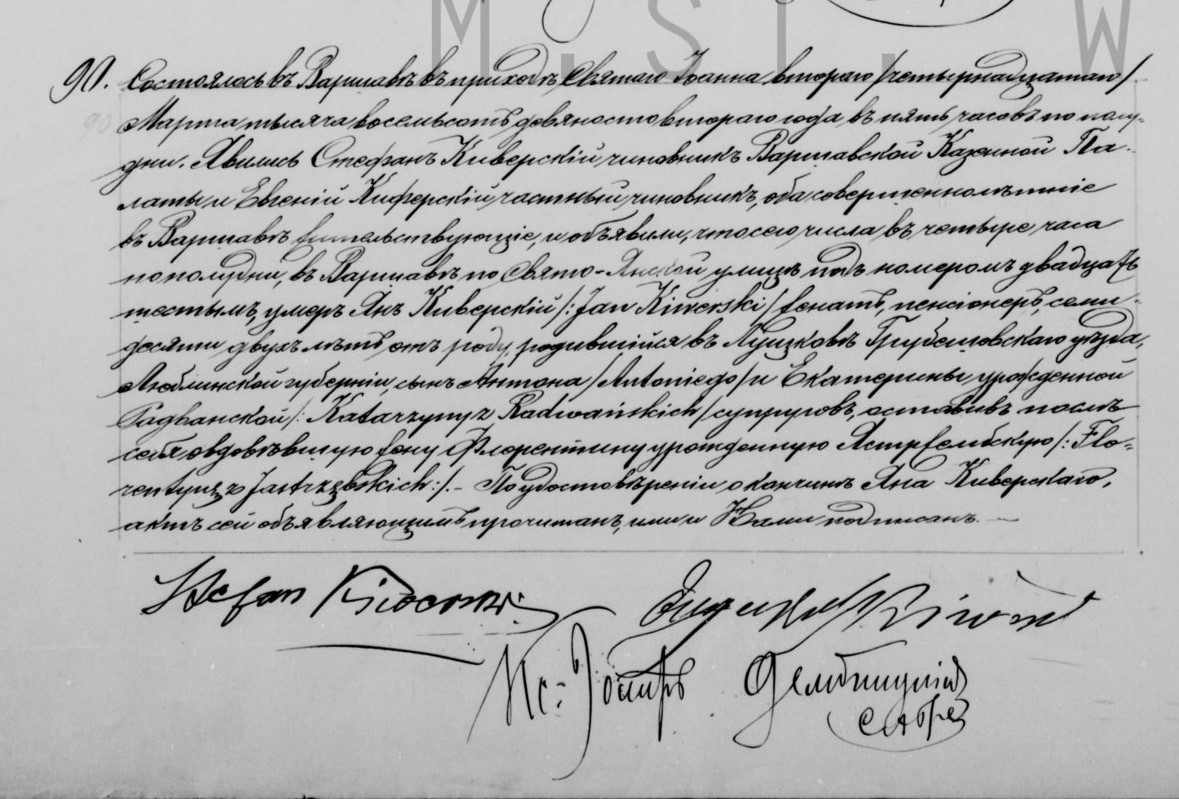 M. ST. W
90. Состоялось въ Варшавѣ въ приходѣ Святаго Іоанна втораго /четырнадцатаго/
Марта тысяча восемьсотъ девяносто втораго года въ пять часовъ по полу-
дни. Явились Стефанъ Киверскій, чиновникъ Варшавской Казенной Па-
латы и Евгеній Киферскій, частный чиновникъ, оба совершеннолѣтніе
въ Варшавѣ жительствующіе, и объявили, что сего числа въ четыре часа
по полудни, въ Варшавѣ по Свято-Янской улицѣ подъ номеромъ двадцать
шестымъ, умеръ Янъ Киверскій /: Jan Kiwerski / женатъ, пенсіонеръ, семи-
десяти двухъ лѣтъ, отъ роду, родившійся въ Лушковѣ Грубешовскаго уѣзда,
Люблинской губерніи, сынъ Антона /Antoniego/ и Екатерины урожденной
Радванской /: Katarzyny z Radwańskich / супруговъ, оставивъ послѣ
себя овдовѣвшую жену Флорентину урожденную Ястржембскую /: Flo-
rentynę z Jastrzębskich :/. - По удостовѣреніи о кончинѣ Яна Киверскаго,
актъ сей объявляющимъ прочитанъ, ими и Нами подписанъ. —
Stefan Kiwerski
Кс: